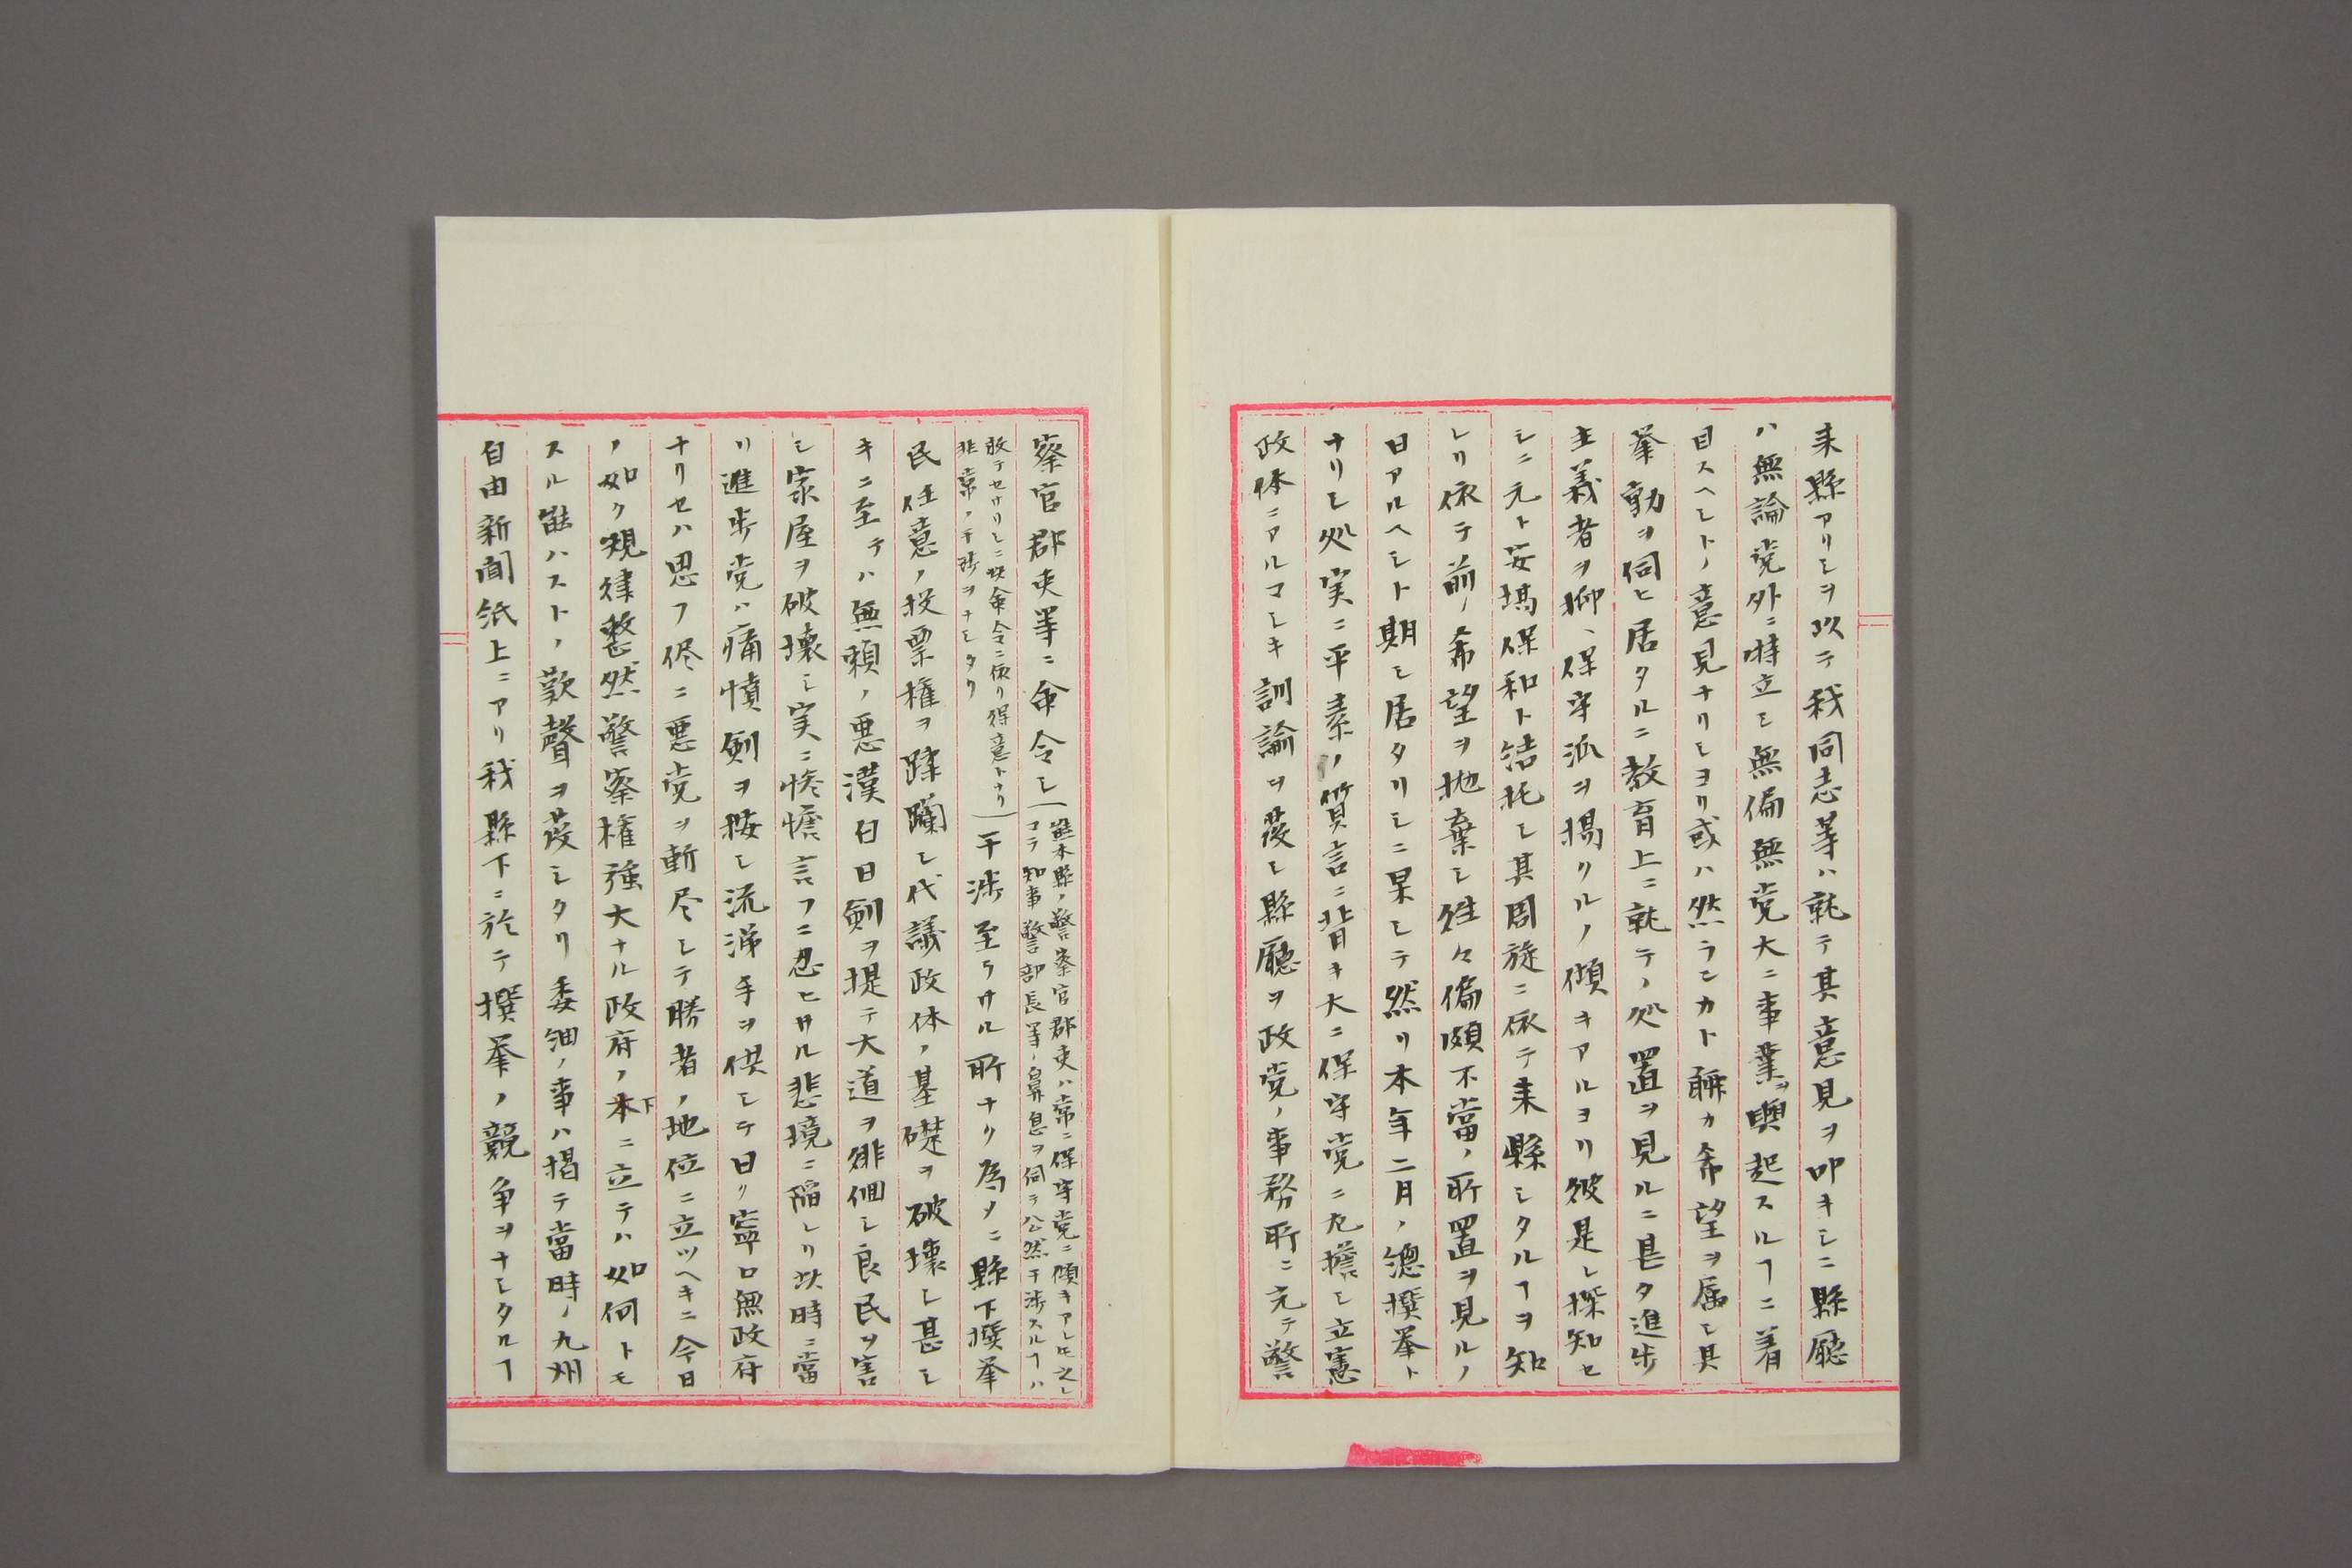 来縣アリシヲ以テ我同志等ハ就テ其意見ヲ叩キシニ縣廳
ハ無論党外ニ特立シ無偏無党大ニ事業ヲ興起スルヿニ着
目スヘシトノ意見ナリシヨリ或ハ然ランカト聊カ希望ヲ属シ其
挙動ヲ伺ヒ居タルニ教育上ニ就テノ処置ヲ見ルニ甚タ進歩
主義者ヲ抑ヘ保守派ヲ揚クルノ傾キアルヨリ彼是レ探知セ
シニ元ト安場保和ト結托シ其周旋ニ依テ来縣シタルヿヲ知
レリ依テ前ノ希望ヲ抛棄シ徃々偏頗不當ノ所置ヲ見ルノ
日アルヘシト期シ居タリシニ果シテ然リ本年二月ノ總撰挙ト
ナリシ処実ニ平素ノ質言ニ背キ大ニ保守党ニ左擔シ立憲
政体ニアルマシキ訓諭ヲ發シ縣廳ヲ政党ノ事務所ニ充テ警
察官郡吏等ニ命令シ(熊本縣ノ警察官郡吏ハ常ニ保守党ニ傾キアレ𪜈之レ
マテ知事警部長等ノ鼻息ヲ伺テ公然干渉スルヿハ
敢テセサリシニ此命令ニ依リ得意トナリ
非常ノ干渉ヲナシタリ)干渉至ラサル所ナク為メニ縣下撰挙
民任意ノ投票権ヲ蹂躙シ代議政体ノ基礎ヲ破壊シ甚シ
キニ至テハ無頼ノ悪漢白日劍ヲ提テ大道ヲ徘徊シ良民ヲ害
シ家屋ヲ破壊シ実ニ惨憺言フニ忍ヒサル悲境ニ陥レリ此時ニ當
リ進歩党ハ痛憤劍ヲ按シ流涕手ヲ供シテ曰ク寧ロ無政府
ナリセハ思フ侭ニ悪党ヲ斬尽シテ勝者ノ地位ニ立ツヘキニ今日
ノ如ク規律整然警察権強大ナル政府ノ下ニ立テハ如何トモ
スル能ハストノ歎聲ヲ發シタリ委細ノ事ハ掲テ當時ノ九州
自由新聞紙上ニアリ我縣下ニ於テ撰挙ノ競争ヲナシタルヿ